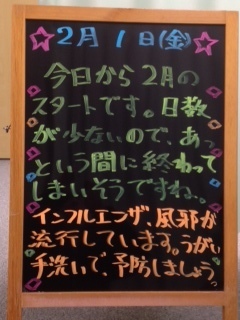 2月1日(金)
今日から2月の
スタートです。日数
が少ないので、あっ
という間に終わって
しまいそうですね。
インフルエンザ、風邪が
流行しています。うがい
手洗いで、予防しましょうっ